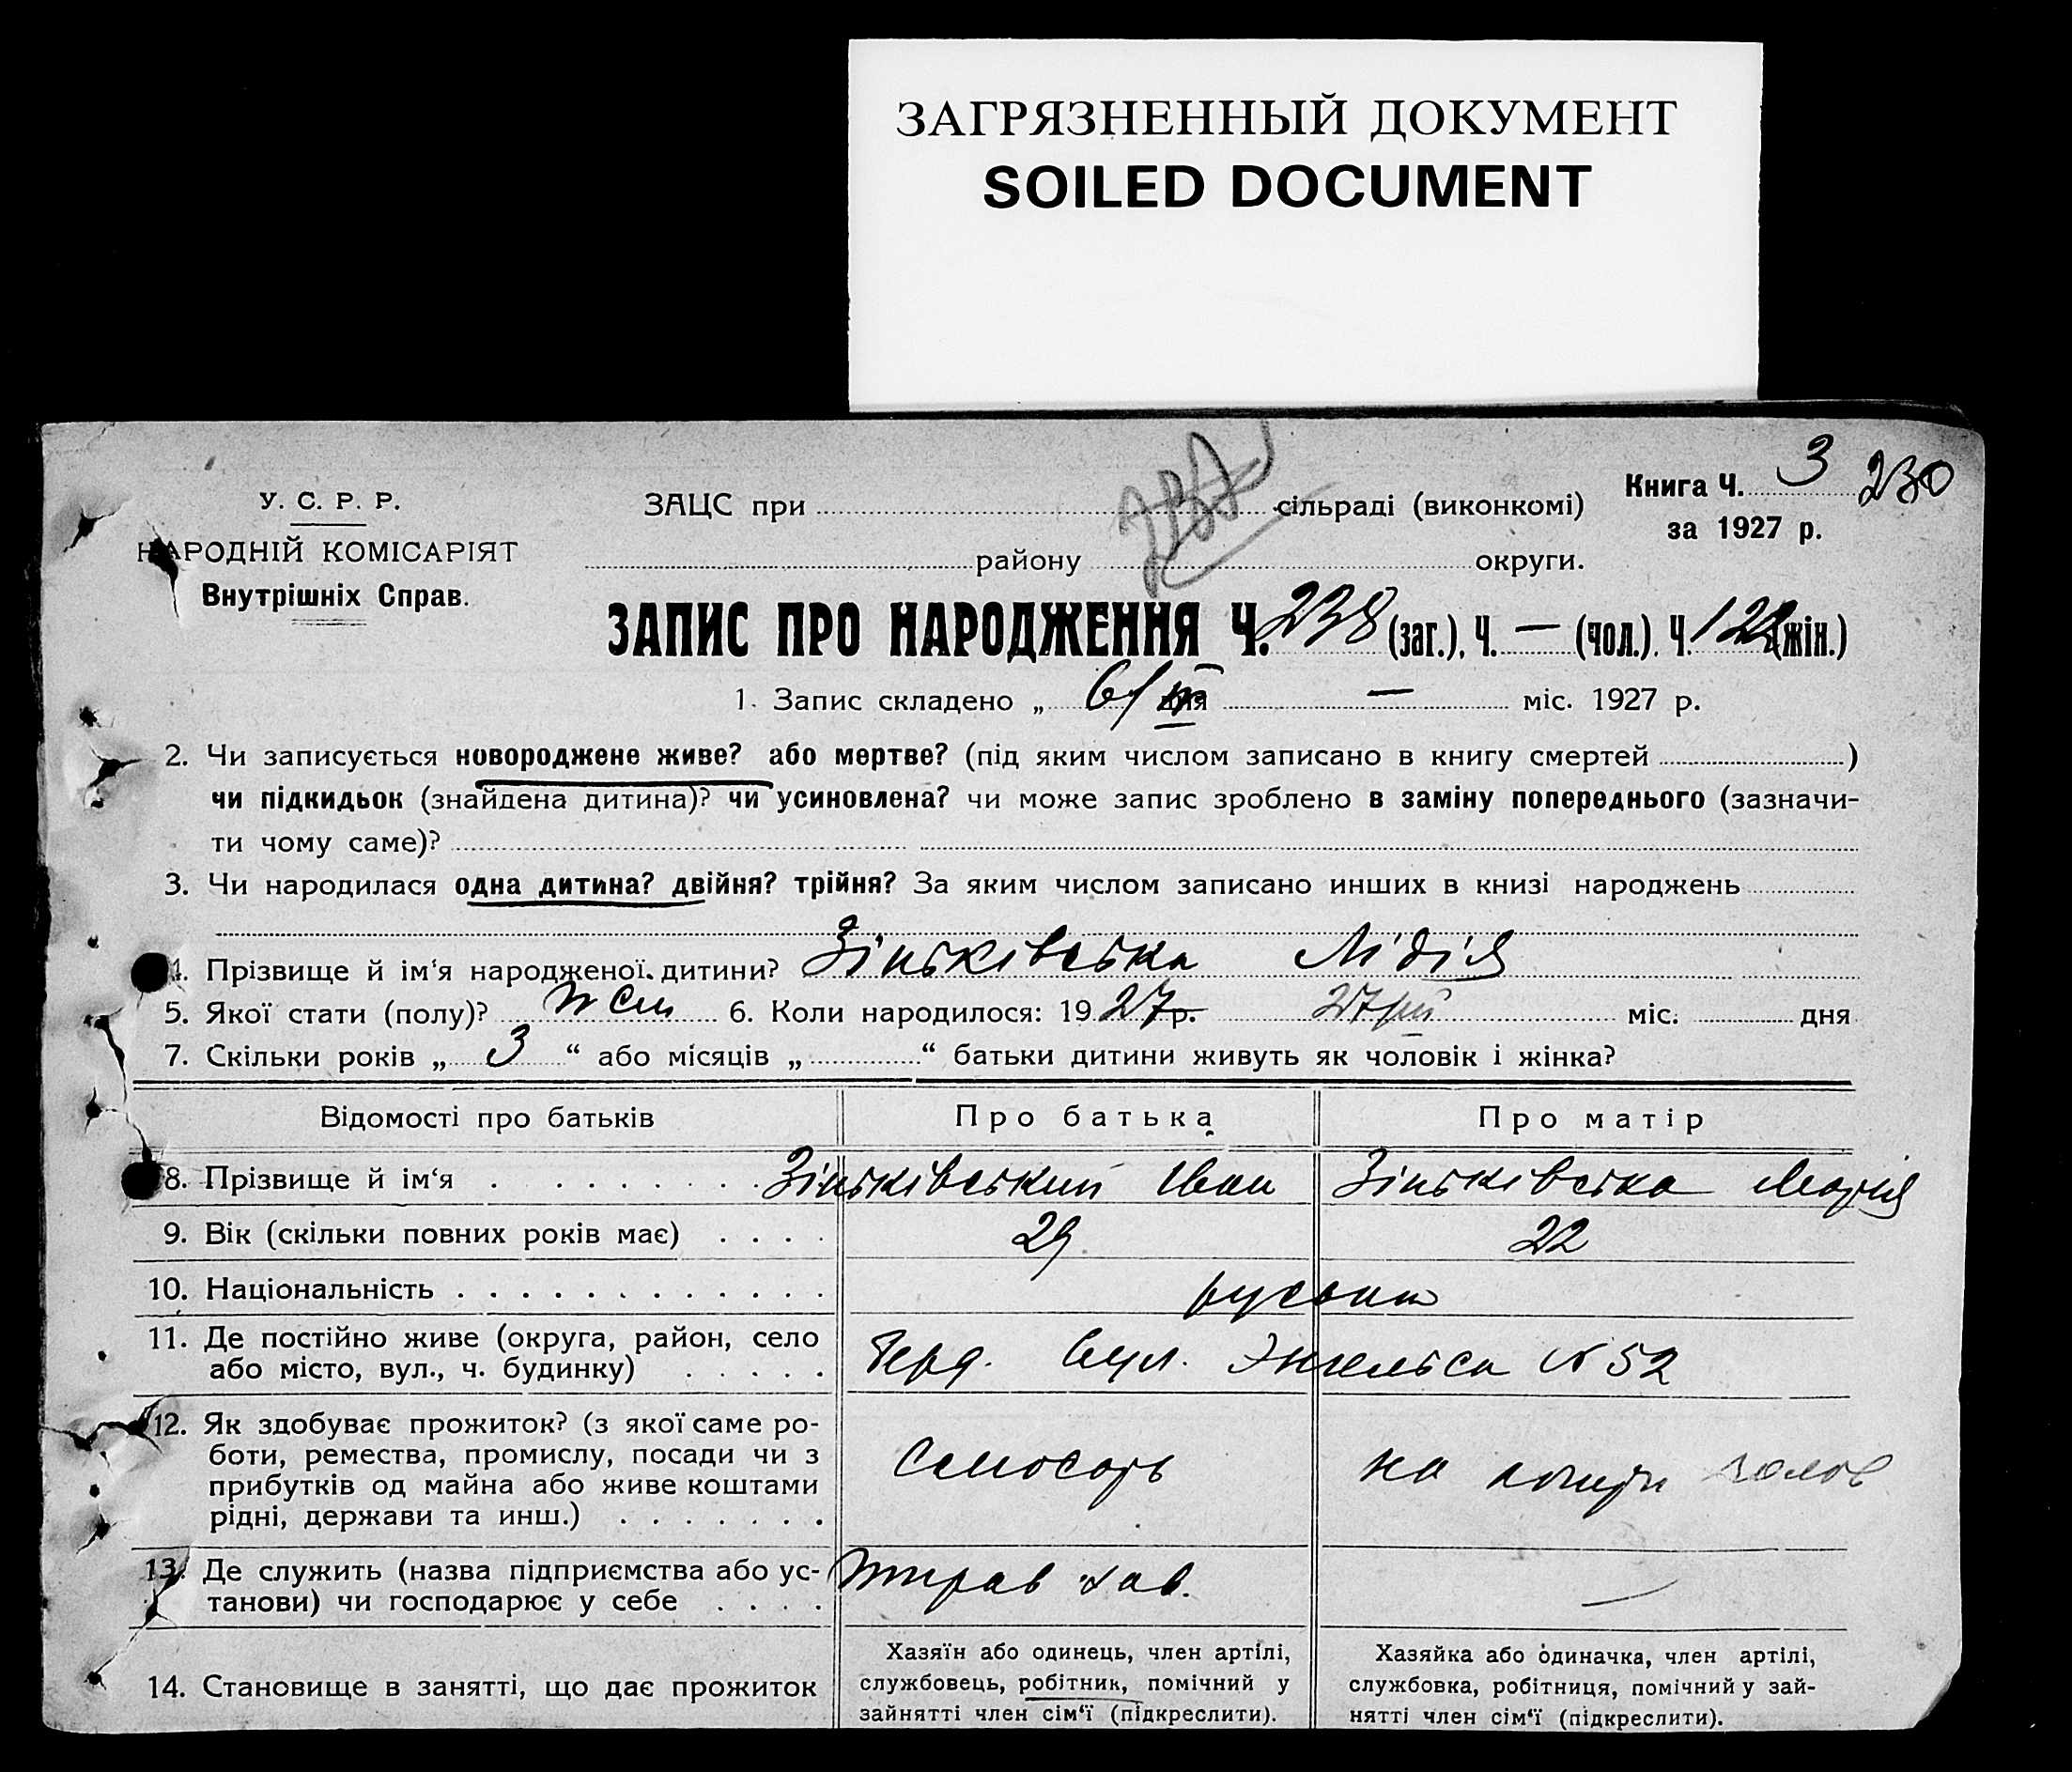 ЗАГРЯЗНЕННЫЙ ДОКУМЕНТ
SOILED DOCUMENT
Книга Ч. 3 230
за 1927 р.
У. С. Р. Р.
НАРОДНІЙ КОМІСАРІЯТ
Внутрішніх Справ.
ЗАЦС при сільраді (виконкомі)
району округи.
237
ЗАПИС ПРО НАРОДЖЕННЯ Ч. 238 (заг.), Ч. — (чол.). Ч. 122 (жін.)
1. Запис складено „ 6/III дня — міс. 1927 р.
2. Чи записується новороджене живе? або мертве? (під яким числом записано в книгу смертей )
чи підкидьок (знайдена дитина)? чи усиновлена? чи може запис зроблено в заміну попереднього (зазначи-
ти чому саме)?
3. Чи народилася одна дитина? двійня? трійня? За яким числом записано инших в книзі народжень
4. Прізвище й ім‘я народженої дитини? Зіньківська Лідія
5. Якої стати (полу)? жен 6. Коли народилося: 1927 р. 27/ міс. дня
7. Скільки років „ 3 “ або місяців „ “ батьки дитини живуть як чоловік і жінка?
Відомості про батьків Про батька Про матір
8. Прізвище й ім‘я . . . . . . . . Зіньківський Іван Зіньківська Марія
9. Вік (скільки повних років має) . . . . 29 22
10. Національність . . . . . . . . . . . . .
11. Де постійно живе (округа, район, село
або місто, вул., ч. будинку) . . . . . Берд. вул. Энгельса N 52
12. Як здобуває прожиток? (з якої саме ро-
боти, ремества, промислу, посади чи з
прибутків од майна або живе коштами
рідні, держави та инш.) . . . . . . . Слюсарь на
13. Де служить (назва підприємства або ус-
танови) чи господарює у себе . . . . зав. —
14. Становище в занятті, що дає прожиток
Хазяїн або одинець, член артілі,
службовець, робітник, помічний у
зайнятті член сім‘ї (підкреслити).
Хазяйка або одиначка, член артілі,
службовка, робітниця, помічний у зай-
нятті член сім‘ї (підкреслити).